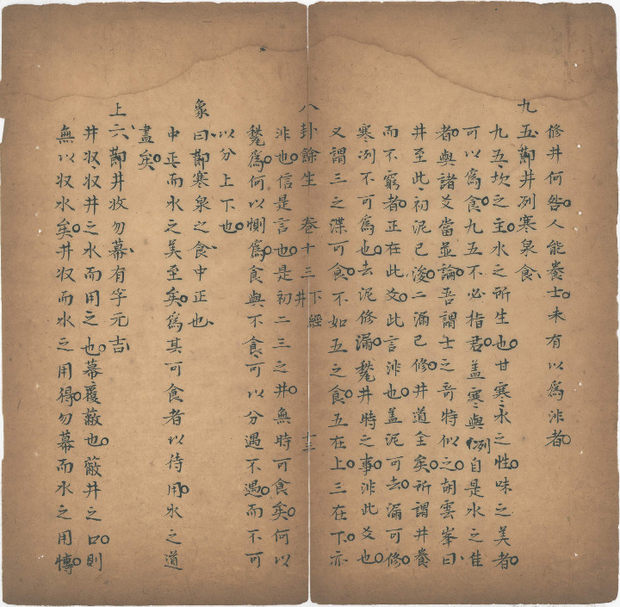 修井何咎人能養士未有以為非者
九五䷯井冽寒泉食
九五坎之主水之所生也甘寒水之性味之美者
可以為食九五不必指君蓋寒與冽自是水之佳
者與諸爻當並論吾謂士之奇特似之胡雲峯曰
井至此初泥已浚二漏已修井道全矣所謂井養
而不窮者正在此爻此言非也蓋泥可去漏可修
寒冽不可為也去泥修漏甃井時之事非此爻也
又謂三之渫可食不如五之食五在上三在下亦
八卦餘生 卷十三 下經 井 十三
非也信是言也是初二三之井無時可食矣何以
甃為何以惻為食與不食可以分遇不遇而不可
以分上下也
象曰䷯寒泉之食中正也
中正而水之美至矣為其可食者以待用水之道
盡矣
上六䷯井收勿幕有孚元吉
井収収井之水而用之也幕覆蔽也蔽井之口則
無以収水矣井収而水之用得勿幕而水之用博